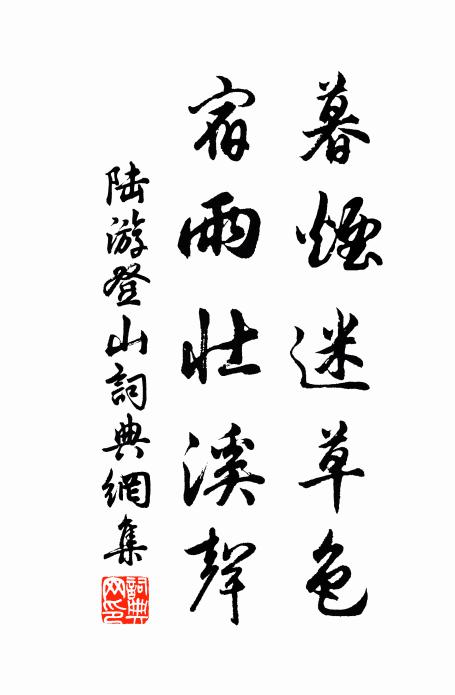 暮煙迷草色
宿雨壯溪聲
陸游登山詞典網集
詞典網印